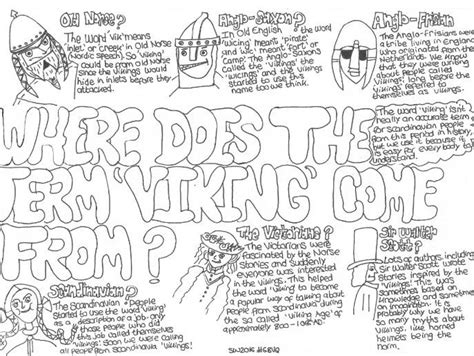 Old Norse?
The Word 'Vik' means
'inlet' or 'creek' in Old Norse
(Nordic speech). So 'Viking'
could be from Old Norse
Since the Vikings would
hide in inlets before they
attacked.
Anglo-Saxon?
In Old English, the word
'wicing' means 'pirate'
and 'wic' meant 'fort' or
Camp. The Anglo-Saxons
called the 'Vikings' the
'wicings' and the vikings
started to use this
name too we think.
Anglo-Frisian
The Anglo-Frisians were
a tribe living in England
who originated from the
Netherlands. We know
that they were writing
about people called
'Vikings' long before the
Vikings ever referred to
themselves as 'vikings'.
The word 'Viking' isn't
really an accurate term
for Scandinavian people
from this period in history
but we use it because it
is easy for every body to
understand.
WHERE DOES THE
TERM 'VIKING' COME
FROM?
Scandinavian?
The Scandinavian People
started to use the word 'Viking'
as a description of a job. Any
of those people who did
this Job called themselves
'Vikings'. Soon we were calling
all people from Scandinavia 'Vikings'!
The Victorians?
The Victorians were
fascinated by the Norse
Stories and Suddenly
everyone was interested
in Vikings. This helped
the word 'Viking' to become
a popular way of talking about
people from Scandinavia during
the so called 'Viking' Age of
approximately 800-1050AD.
Sir Walter
Scott?
Lots of authors, including
Sir Walter Scott wrote
Stories inspired by the
'Vikings'. This was
sometimes based on
knowledge and sometimes
on imagination. It is
probably why we think
about Vikings today
male, horned
helmets being
the home.